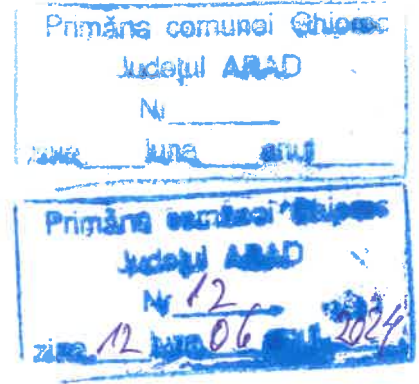 Primăria comunei Ghioroc
Județul ARAD
Nr
ziua luna anul
Primăria comunei Ghioroc
Județul ARAD
Nr 12
ziua 12 luna 06 anul 2024